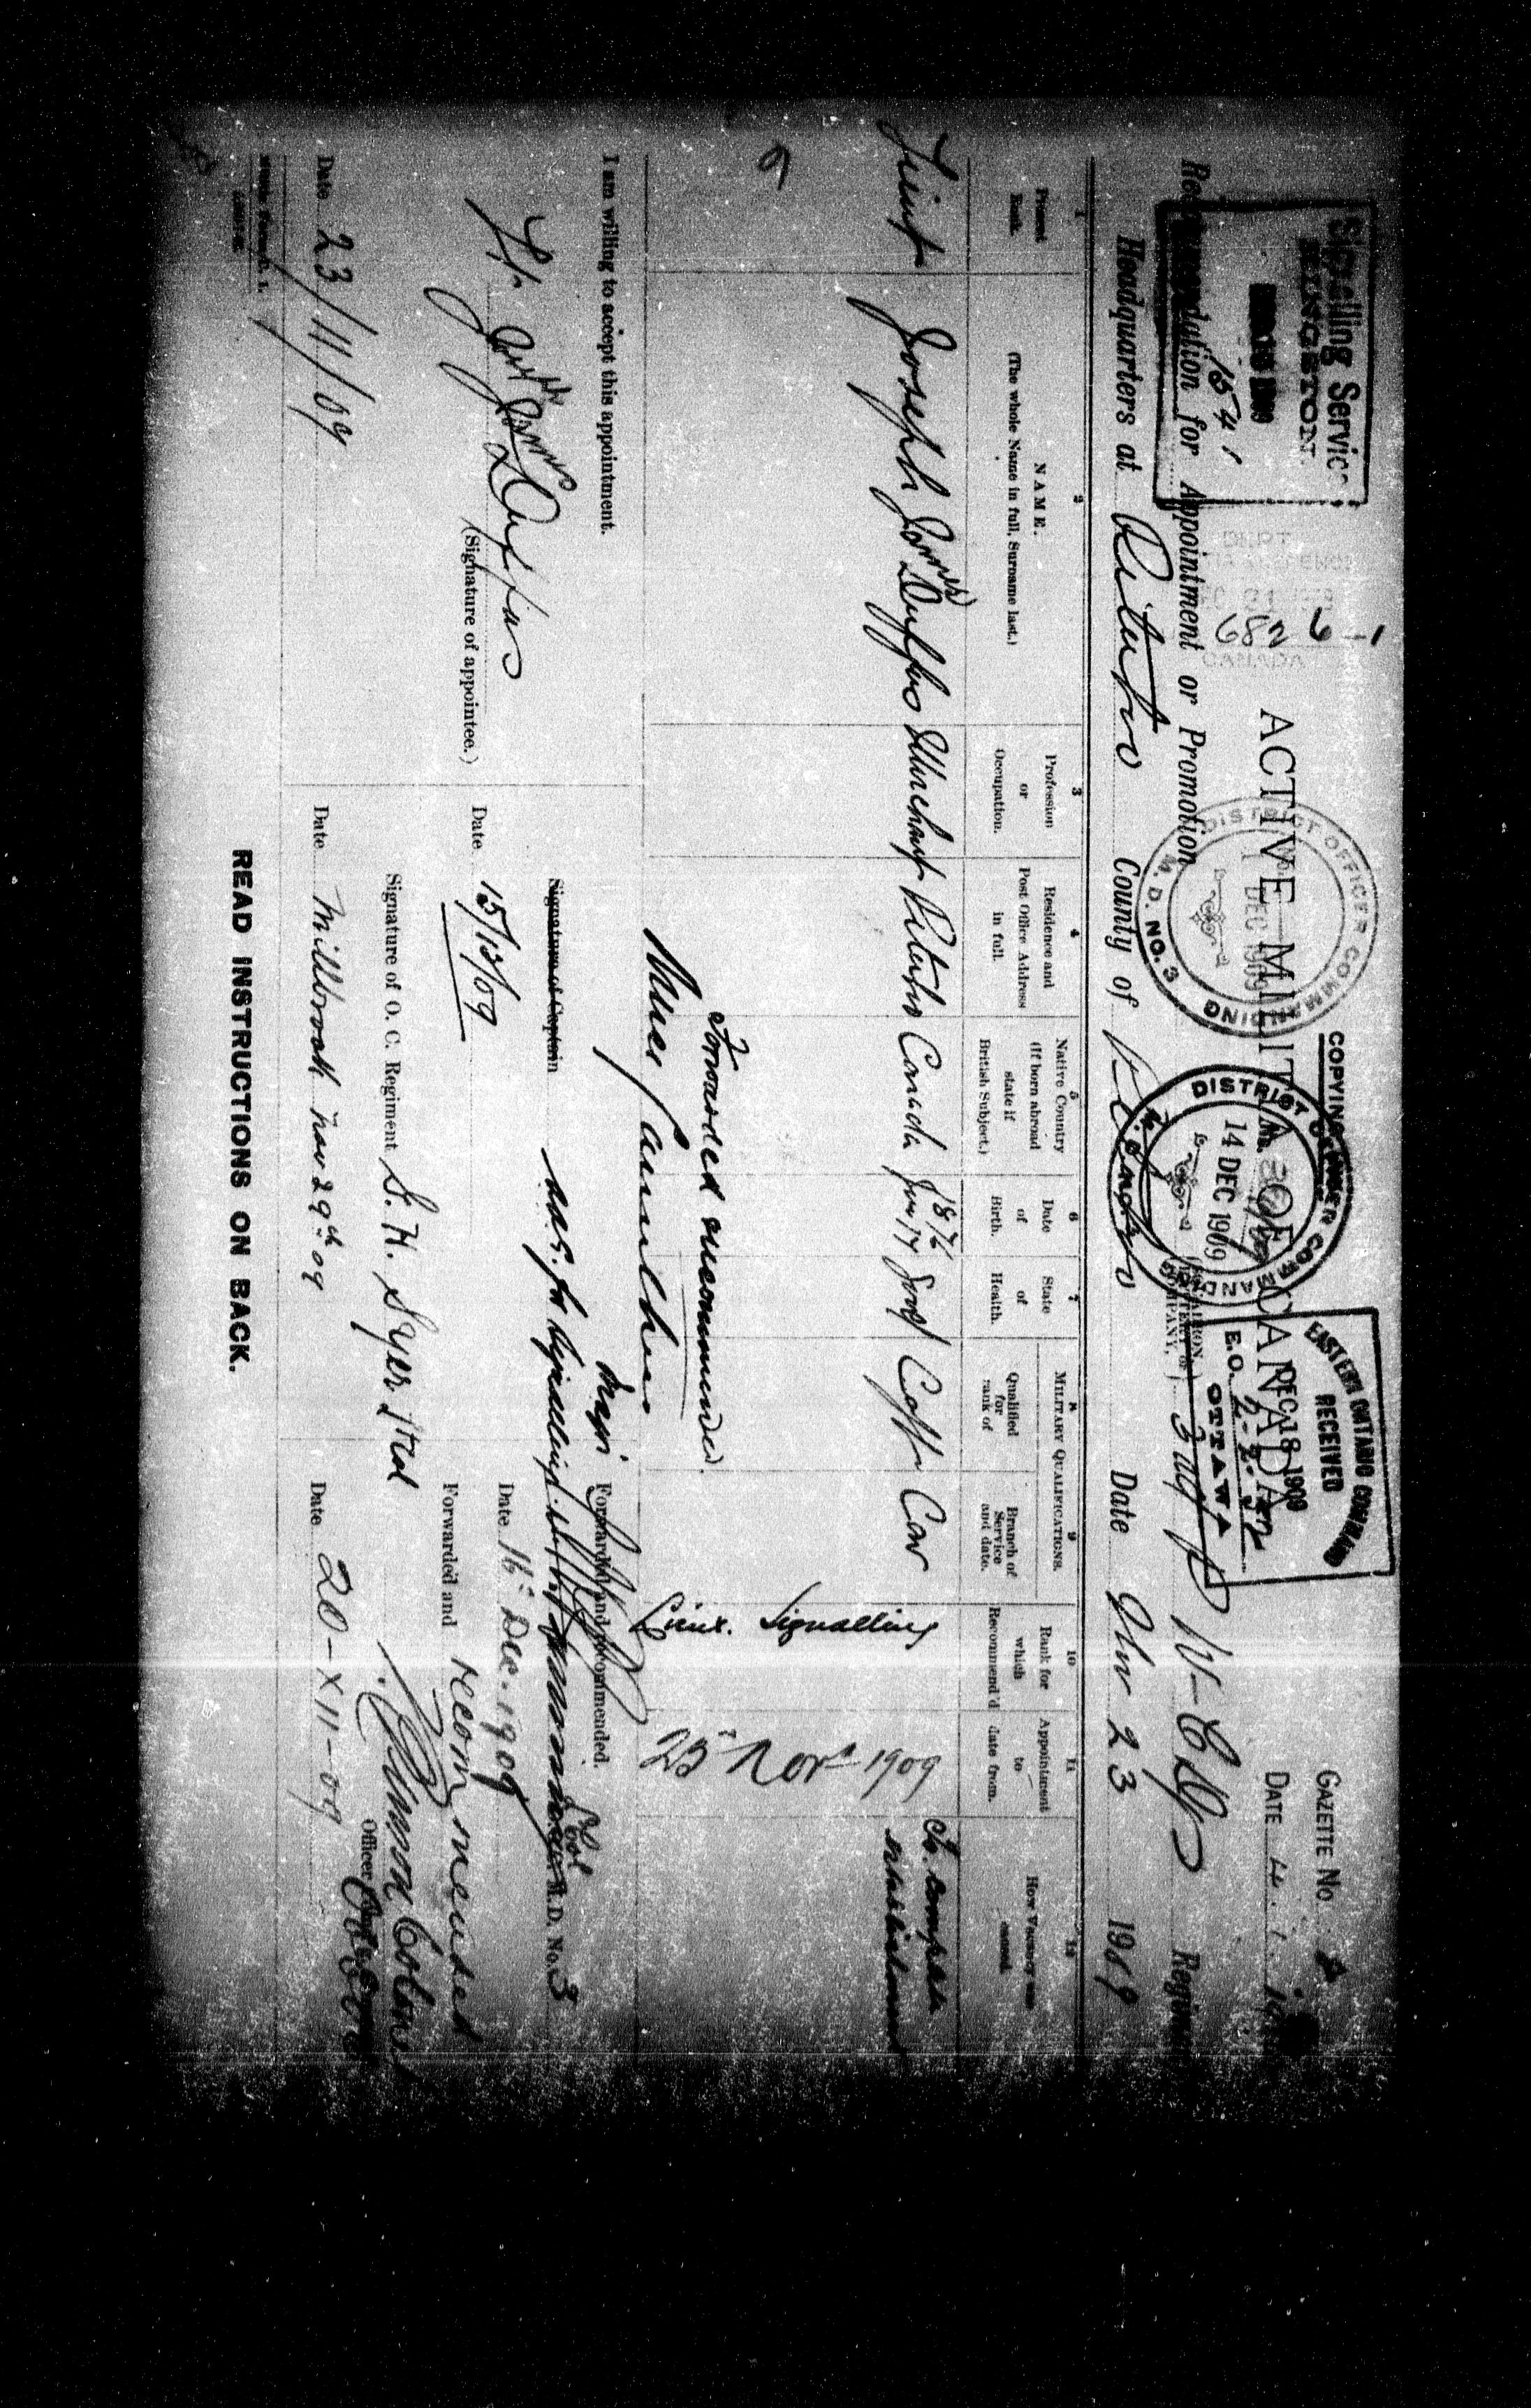 Signalling Service
KINGSTON.
1541
DEPT
682 6-1
CANADA
ACTIVE MILITIA OF CANADA
DISTRICT OFFICER COMMANDING
DEC 1909
M. D. NO. 3
COPYING
DISTRICT OFFICER COMMANDING
14 DEC 1909
EASTERN ONTARIO COMMAND
RECEIVED
DEC 18 1909
E.O.
OTTAWA
GAZETTE No.
DATE 4.1.
Recommendation for Appointment or Promotion
3
Headquarters at Peterboro County of Date Nov 23 1909
1 2 3 4 5 6 7 8 9 10 11 12
Present Rank.
NAME.
(The whole Name in full, Surname last.)
Profession or Occupation.
Residence and Post Office Address in full.
Native Country (If born abroad state if British Subject.)
Date of Birth.
State of Health.
MILITARY QUALIFICATIONS.
Qualified for rank of
Branch of Service and date.
Rank for which Recommend'd
Appointment to date from.
How Vacancy was caused.
Lieut Joseph James Duffus Merchant Peterboro Canada 1876 Jan 17 Good Capt Cav Lieut. Signalling 25th Nov 1909 To complete establishment
Forwarded recommended.
Bruce Carruthers
Major
A.A.G. for Signalling.
I am willing to accept this appointment.
Joseph James Duffus
(Signature of appointee.)
Date 23/11/09
Signature of Captain
Date 15/12/09
Signature of O. C. Regiment S. H. Syer
Date Millbrook Nov 29th 09
Forwarded and recommended.
Col
M.D. No. 3
Date 16th Dec. 1909
Forwarded and recommended
Officer
Date 20-XII-09
READ INSTRUCTIONS ON BACK.